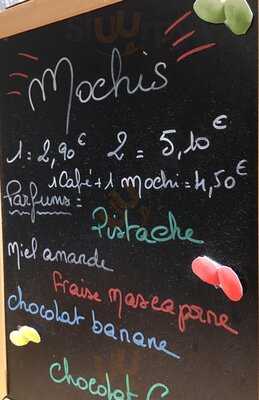 Mochis
1 = 2,90€ 2 = 5,10€
1 Café + 1 Mochi = 4,50€
Parfums =
Pistache
Miel amande
Fraise Mascarpone
Chocolat banane
Chocolat C